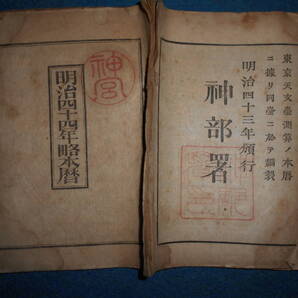 東京天文臺測算ノ本暦
ニ據リ同臺ニ於テ編製
明治四十三年頒行
神部署
神宮
明治四十四年略本暦